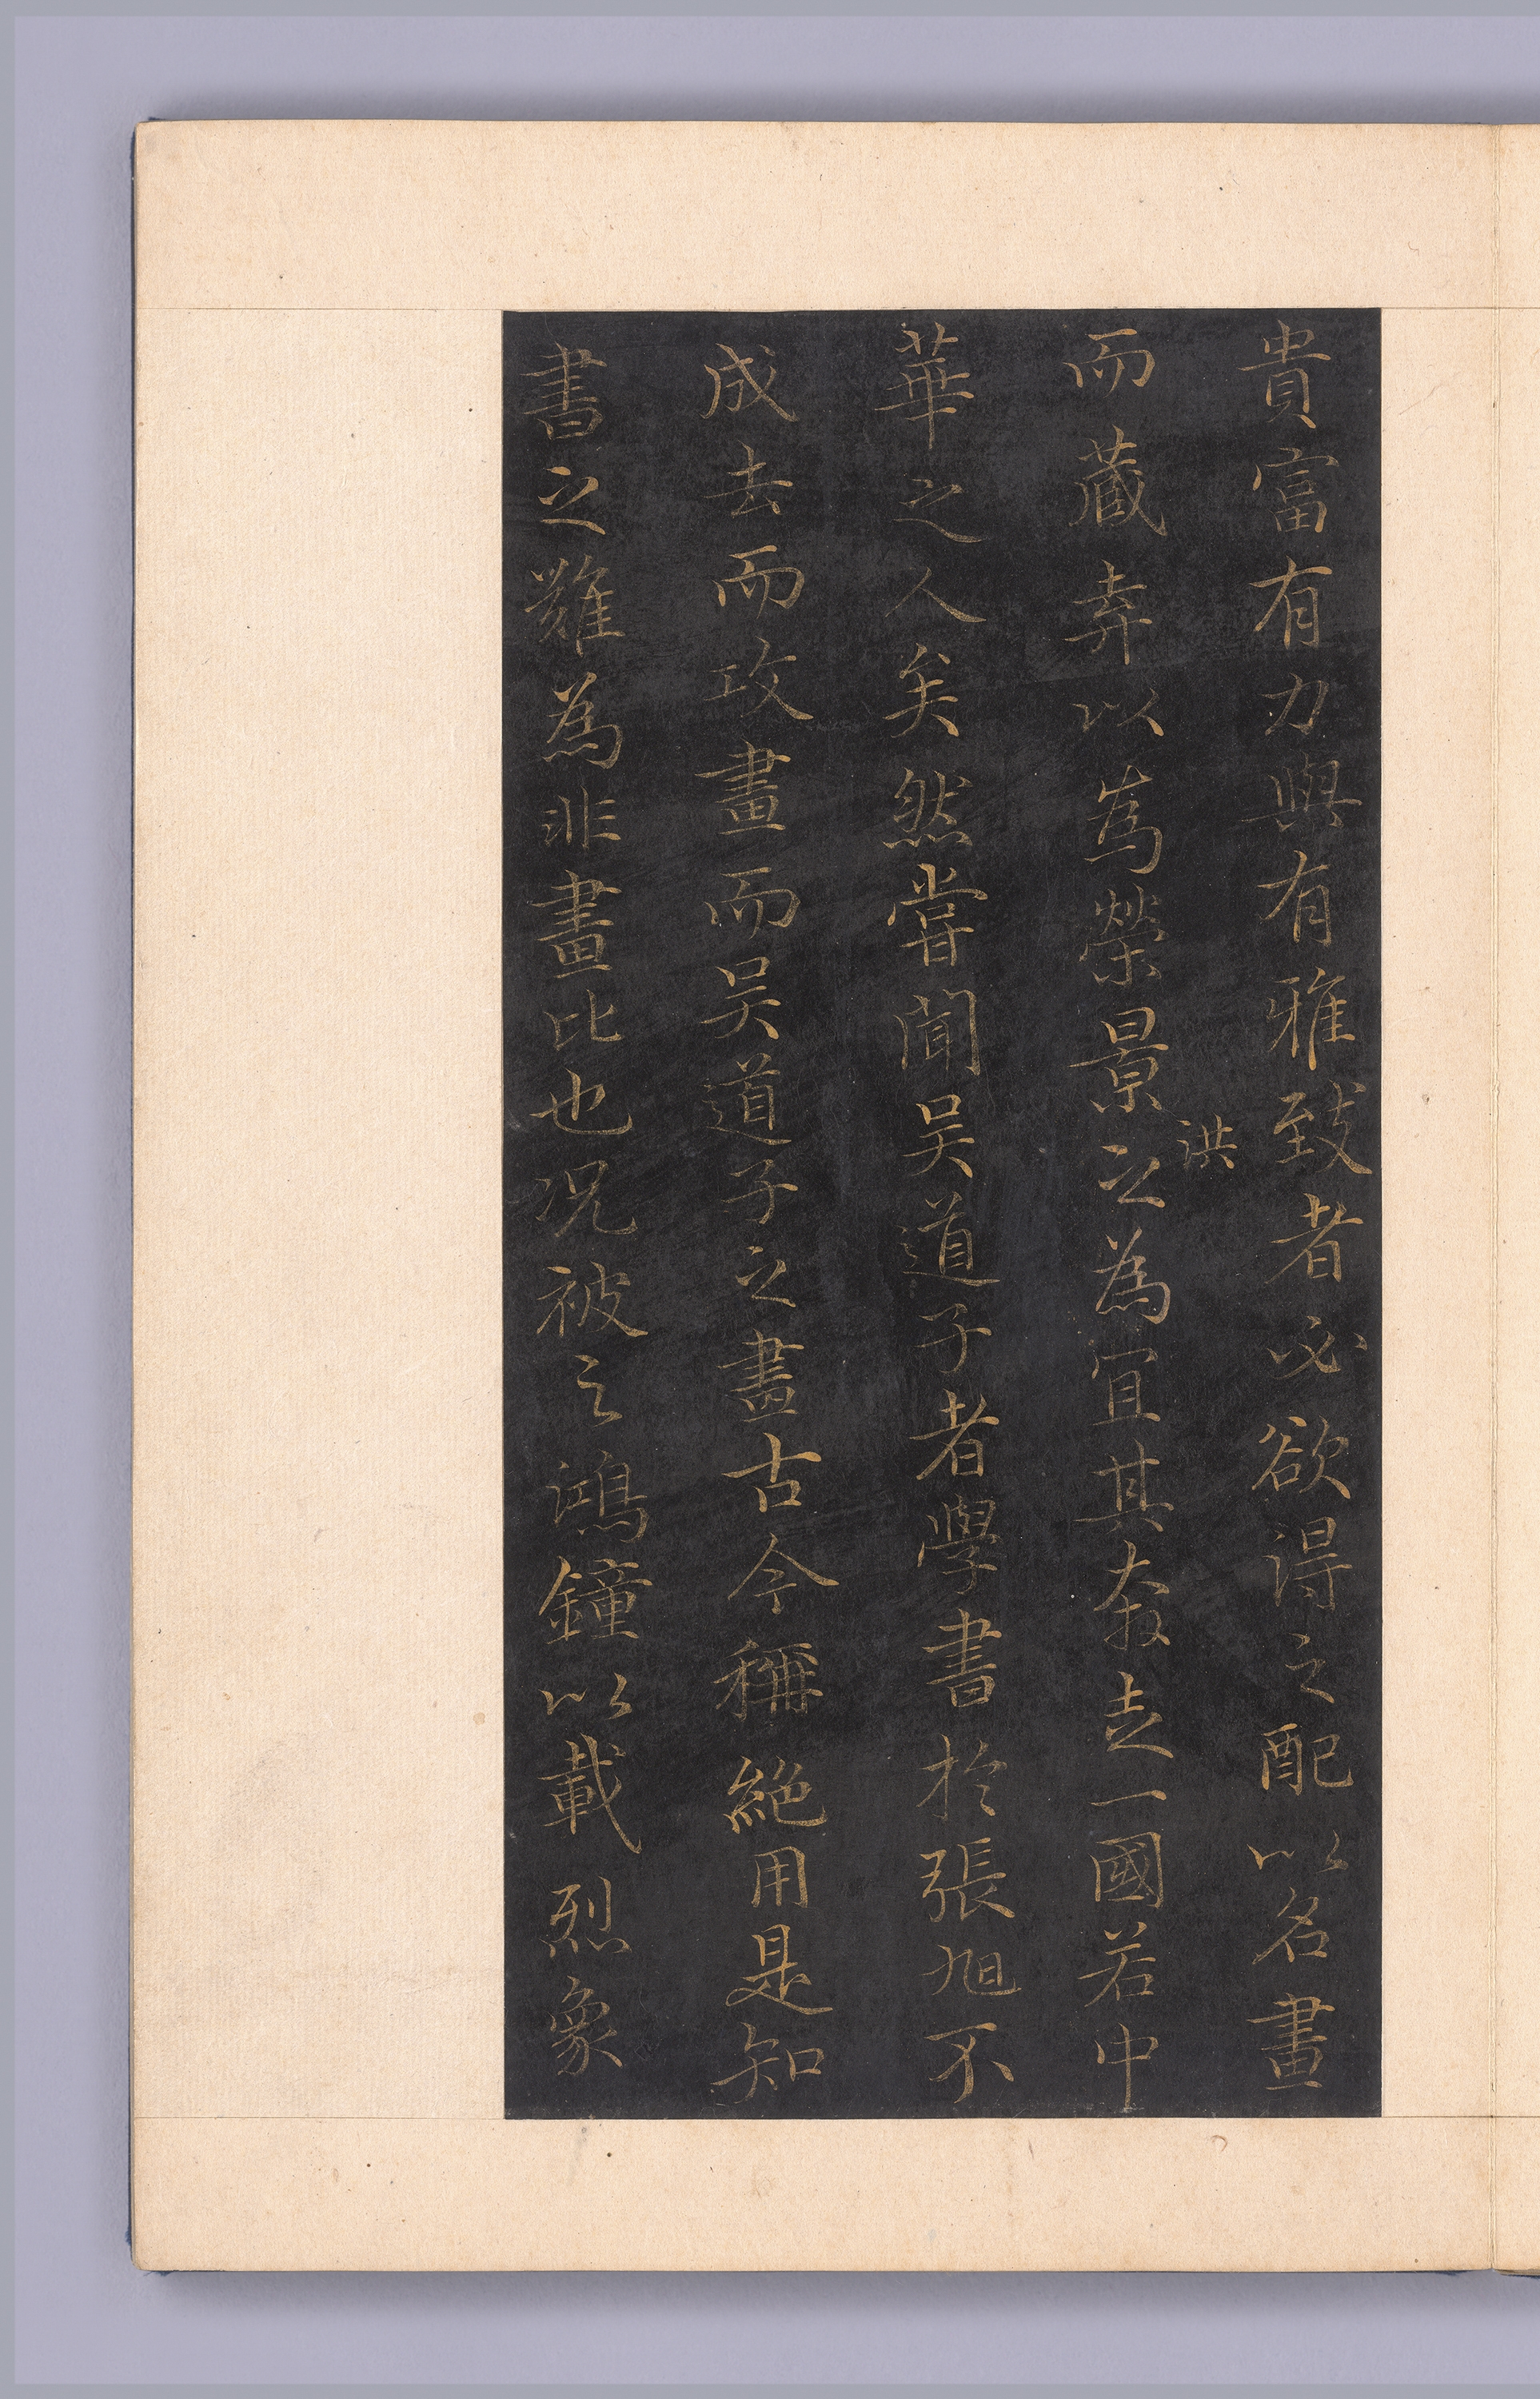 貴富有力與有雅致者必欲得之配以名畫
洪
而藏弆以為榮景之為宜其奔走一國若中
華之人矣然嘗聞吳道子者學書於張旭不
成去而攻畫而吳道子之畫古今稱絕用是知
書之難為非畫比也况被之鴻鐘以載烈象